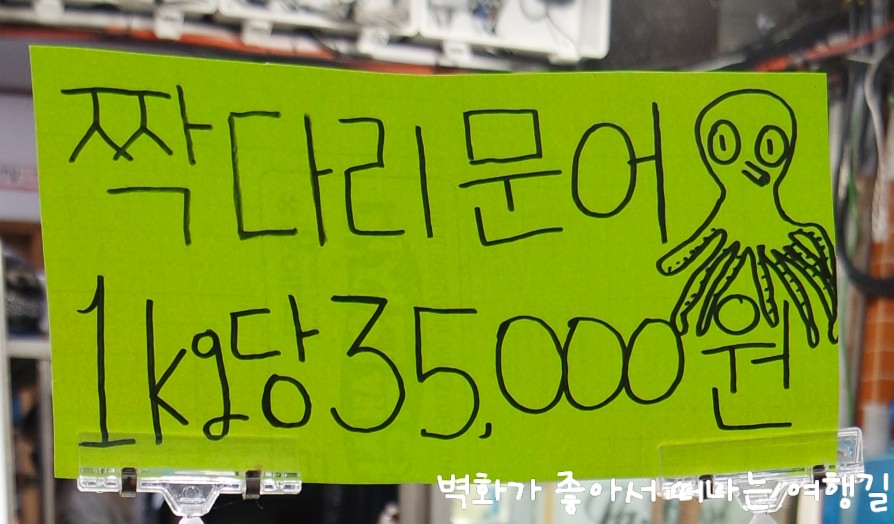 짝다리문어
1kg당 35,000원
벽화가 좋아서 떠나는 여행길